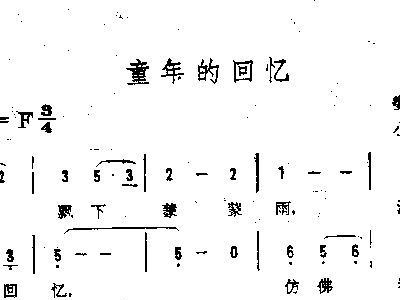 童年的回忆
= F 3/4
2 | 3 5·3 | 2 – 2 | 1 – – |
飘下 蒙 蒙 雨,
3 | 5 – – | 5 – 0 | 6 5 6
回 忆, 仿佛